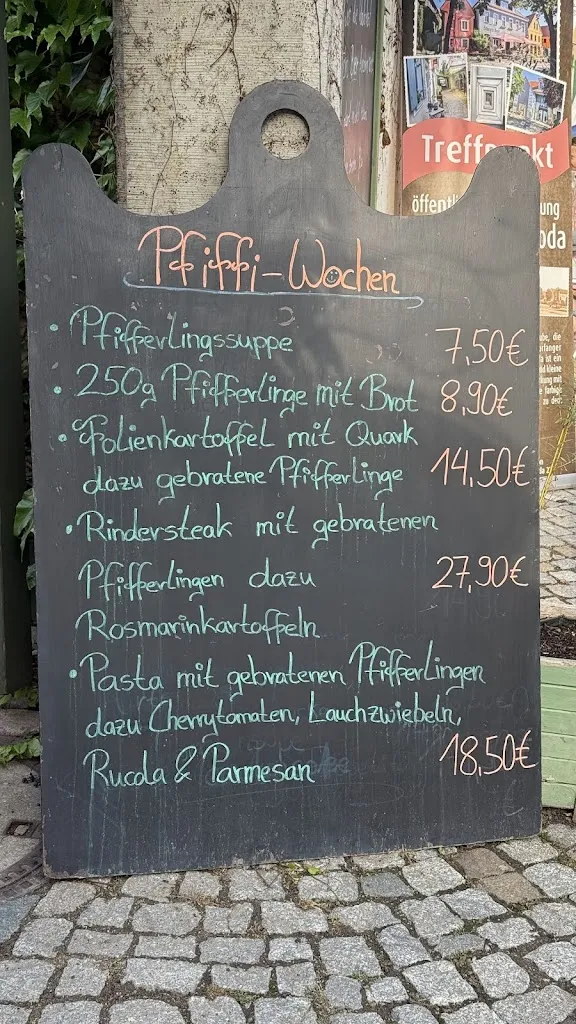 Treffpunkt
Pfiffi-Wochen
• Pfifferlingssuppe 7,50€
• 250g Pfifferlinge mit Brot 8,90€
• Folienkartoffel mit Quark
dazu gebratene Pfifferlinge 14,50€
• Rindersteak mit gebratenen
Pfifferlingen dazu 27,90€
Rosmarinkartoffeln
• Pasta mit gebratenen Pfifferlingen
dazu Cherrytomaten, Lauchzwiebeln,
Rucola & Parmesan 18,50€